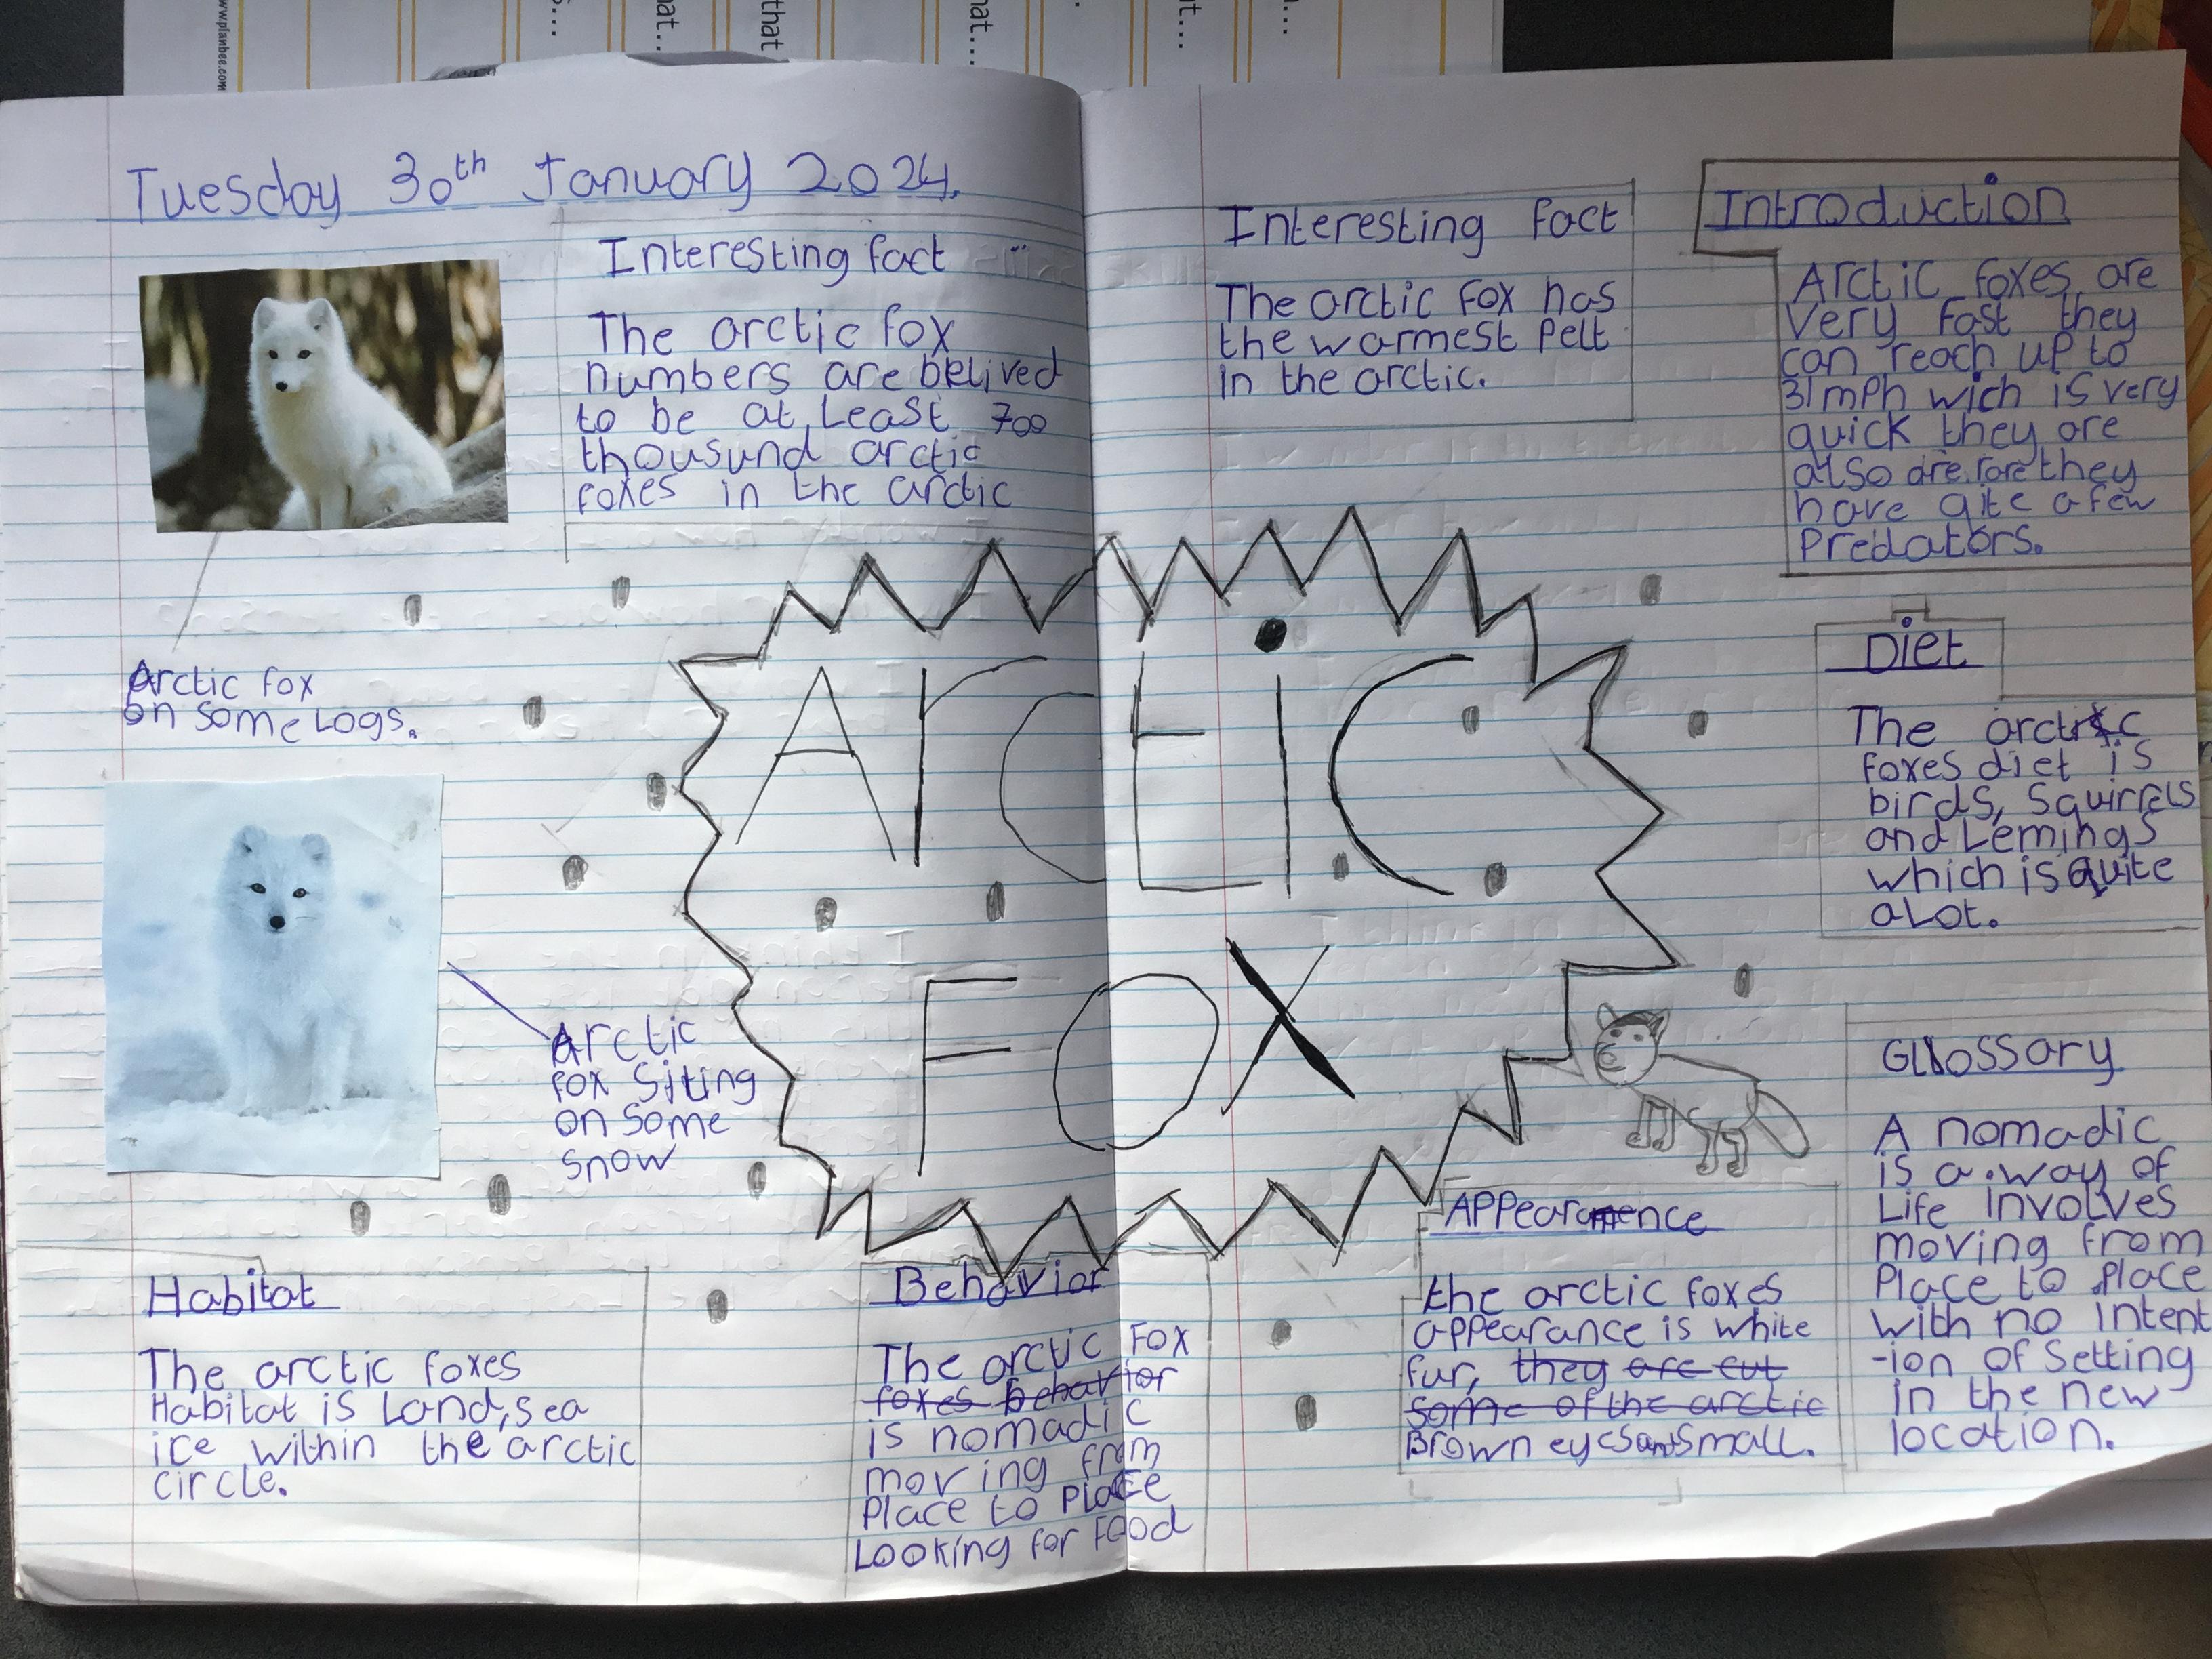 www.planbee.com
s...
hat..
that
hat...
t...
...
Tuesday 30th January 2024.
Interesting fact
The arctic fox
numbers are belived
to be at Least 700
thousund arctic
foxes in the arctic
Arctic fox
on some Logs.
Arctic
fox Siting
on some
snow
Habitat
The arctic foxes
Habitat is Land, sea
ice within the arctic
circle.
Arctic
Fox
Behavior
The arctic Fox
foxes behavior
is nomadic
moving from
Place to place
Looking for Food
Interesting fact
The arctic Fox has
the warmest Pelt
in the arctic.
Introduction
Arctic foxes are
very fast they
can reach up to
31mph wich is very
quick they are
also are rore they
have qite a few
Predators.
Diet
The arctic
foxes diet is
birds, Squirrels
and Lemings
which is quite
a Lot.
Glossary
A nomadic
is a way of
Life involves
moving from
Place to place
with no intent
-ion of Setting
in the new
location.
Appearence
the arctic foxes
appearance is white
fur, they are cut
some of the arctic
Brown eyes and Small.